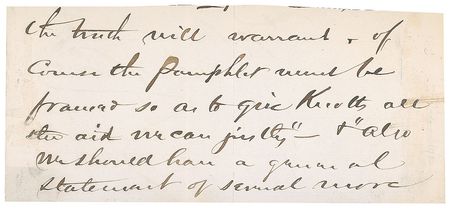 the truth will warrant . of
Course the Pamphlet must be
framed so as to give Knotts all
the aid we can justly" — & "also
We should have a general
statement of several more